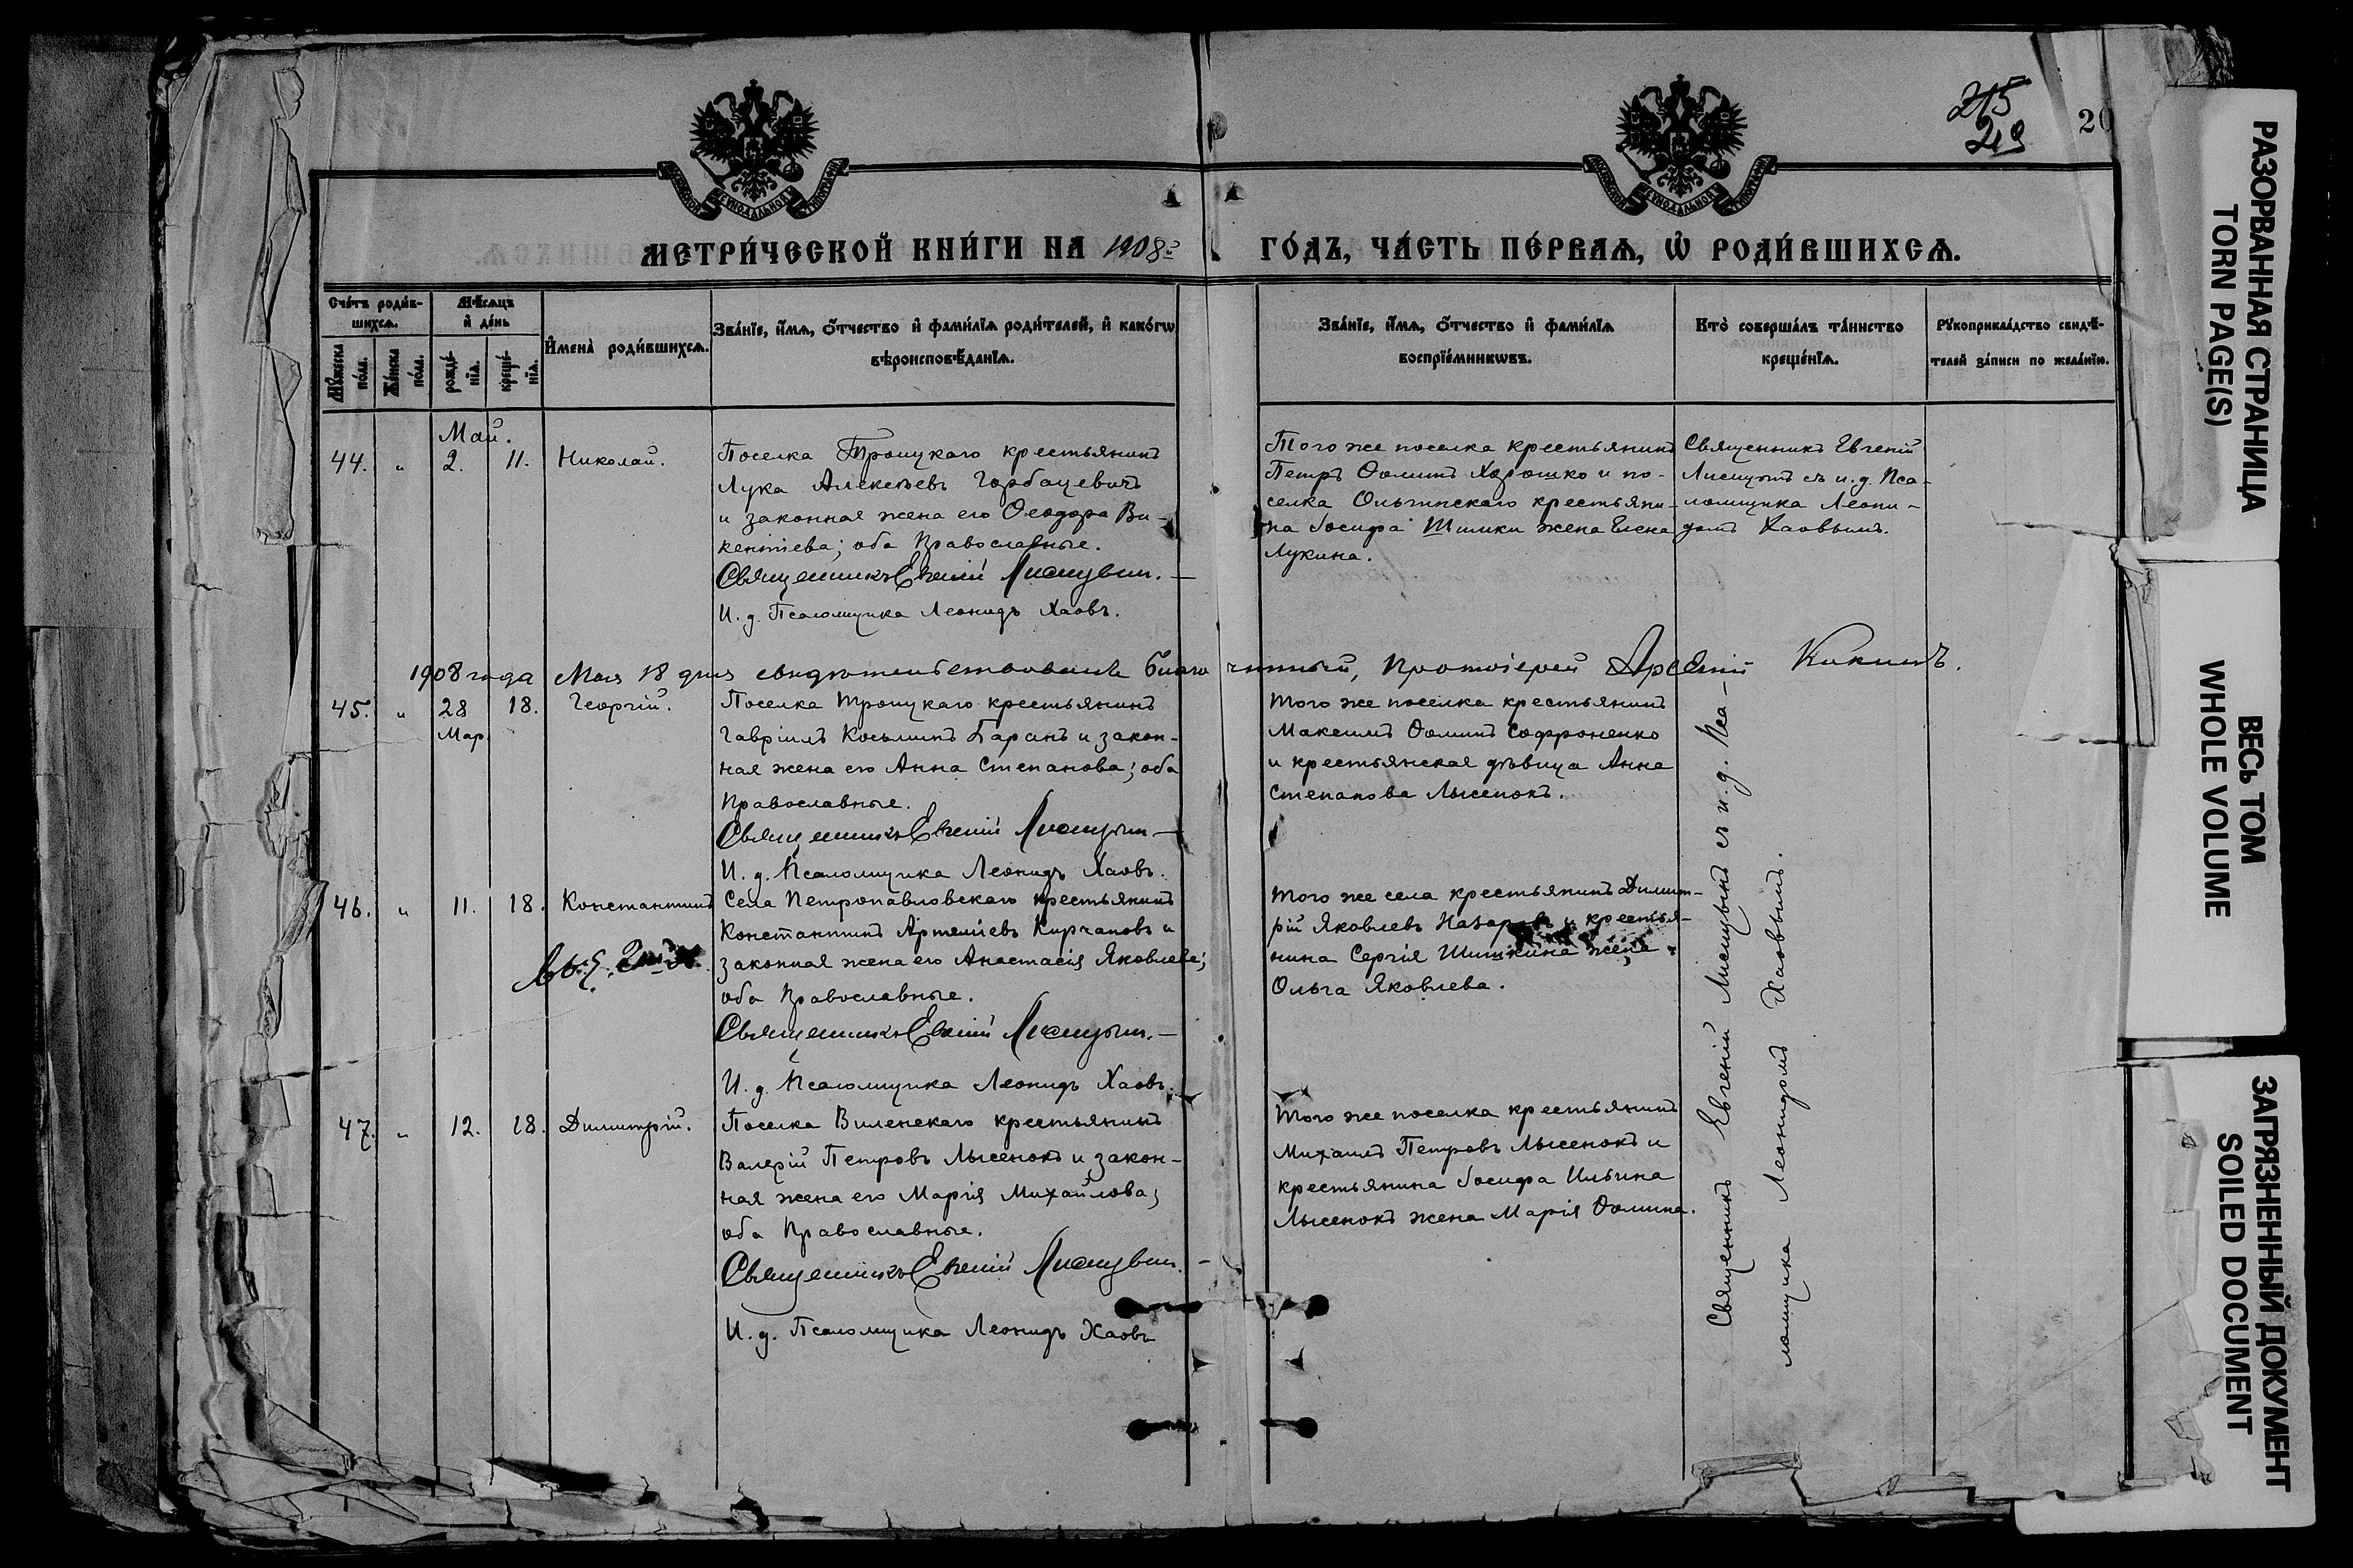 215
219
20
МЕТРИ́ЧЕСКОЙ КНИ́ГИ НА 1908й ГО́ДЪ, ЧА́СТЬ ПЕ́РВАѦ, Ѡ҆ РОДИ́ВШИХСѦ.
Сче́тъ роди́вшихсѧ.
Мꙋ́жеска по́ла.
Же́нска по́ла.
Мѣ́сѧцъ и҆ де́нь
рожде́нїѧ.
креще́нїѧ.
И҆мена̀ роди́вшихсѧ.
Зва́нїе, и҆́мѧ, ѻ҆́тчество и҆ фами́лїѧ роди́телей, и҆ како́гѡ
вѣроисповѣ́данїѧ.
Зва́нїе, и҆́мѧ, ѻ҆́тчество и҆ фами́лїѧ
воспрїе́мникѡвъ.
Кто̀ соверша́лъ та́инство
креще́нїѧ.
Рꙋкоприкла́дство свидѣ́-
телей за́писи по жела́нїю.
Май.
44. " 2. 11. Николай.
Поселка Троицкаго крестьянинъ
Лука Алексѣевъ Горбацевичъ
и законная жена его Ѳеодора Ви-
кентіева; оба Православные.
Священникъ Евгеній Лисицынъ.
И. д. Псаломщика Леонидъ Хаовъ.
Того же поселка крестьянинъ
Петръ Ѳоминъ Хорошко и по-
селка Ольгинскаго крестьяни-
на Іосифа Шишки жена Елена
Лукина.
Священникъ Евгеній
Лисицынъ съ и. д. Пса-
ломщика Леони-
домъ Хаовымъ.
1908 года Мая 18 дня свидѣтельствовалъ благочинный, Протоіерей Арсеній Кикинъ.
45. " 28 Мар. 18. Георгій.
Поселка Троицкаго крестьянинъ
Гавріилъ Косьминъ Баранъ и закон-
ная жена его Анна Степанова; оба
Православные.
Священникъ Евгеній Лисицынъ
И. д. Псаломщика Леонидъ Хаовъ.
Того же поселка крестьянинъ
Максимъ Ѳоминъ Софроненко
и крестьянская дѣвица Анна
Степанова Лысенокъ.
46. " 11. 18. Константинъ
Села Петропавловскаго крестьянинъ
Константинъ Артеміевъ Кирчановъ и
законная жена его Анастасія Яковлева;
оба Православные.
Священникъ Евгеній Лисицынъ.
И. д. Псаломщика Леонидъ Хаовъ.
Того же села крестьянинъ Димит-
рій Яковлевъ Назаровъ и крестья-
нина Сергія Шишкина жена
Ольга Яковлева.
47. " 12. 18. Димитрій.
Поселка Виленскаго крестьянинъ
Валерій Петровъ Лысенокъ и закон-
ная жена его Марія Михайлова;
оба Православные.
Священникъ Евгеній Лисицынъ.
И. д. Псаломщика Леонидъ Хаовъ
Того же поселка крестьянинъ
Михаилъ Петровъ Лысенокъ и
крестьянина Іосифа Ильина
Лысенокъ жена Марія Ѳомина.
Священникъ Евгеній Лисицынъ съ и. д. Пса-
ломщика Леонидомъ Хаовымъ.
РАЗОРВАННАЯ СТРАНИЦА
TORN PAGE(S)
ВЕСЬ ТОМ
WHOLE VOLUME
ЗАГРЯЗНЕННЫЙ ДОКУМЕНТ
SOILED DOCUMENT